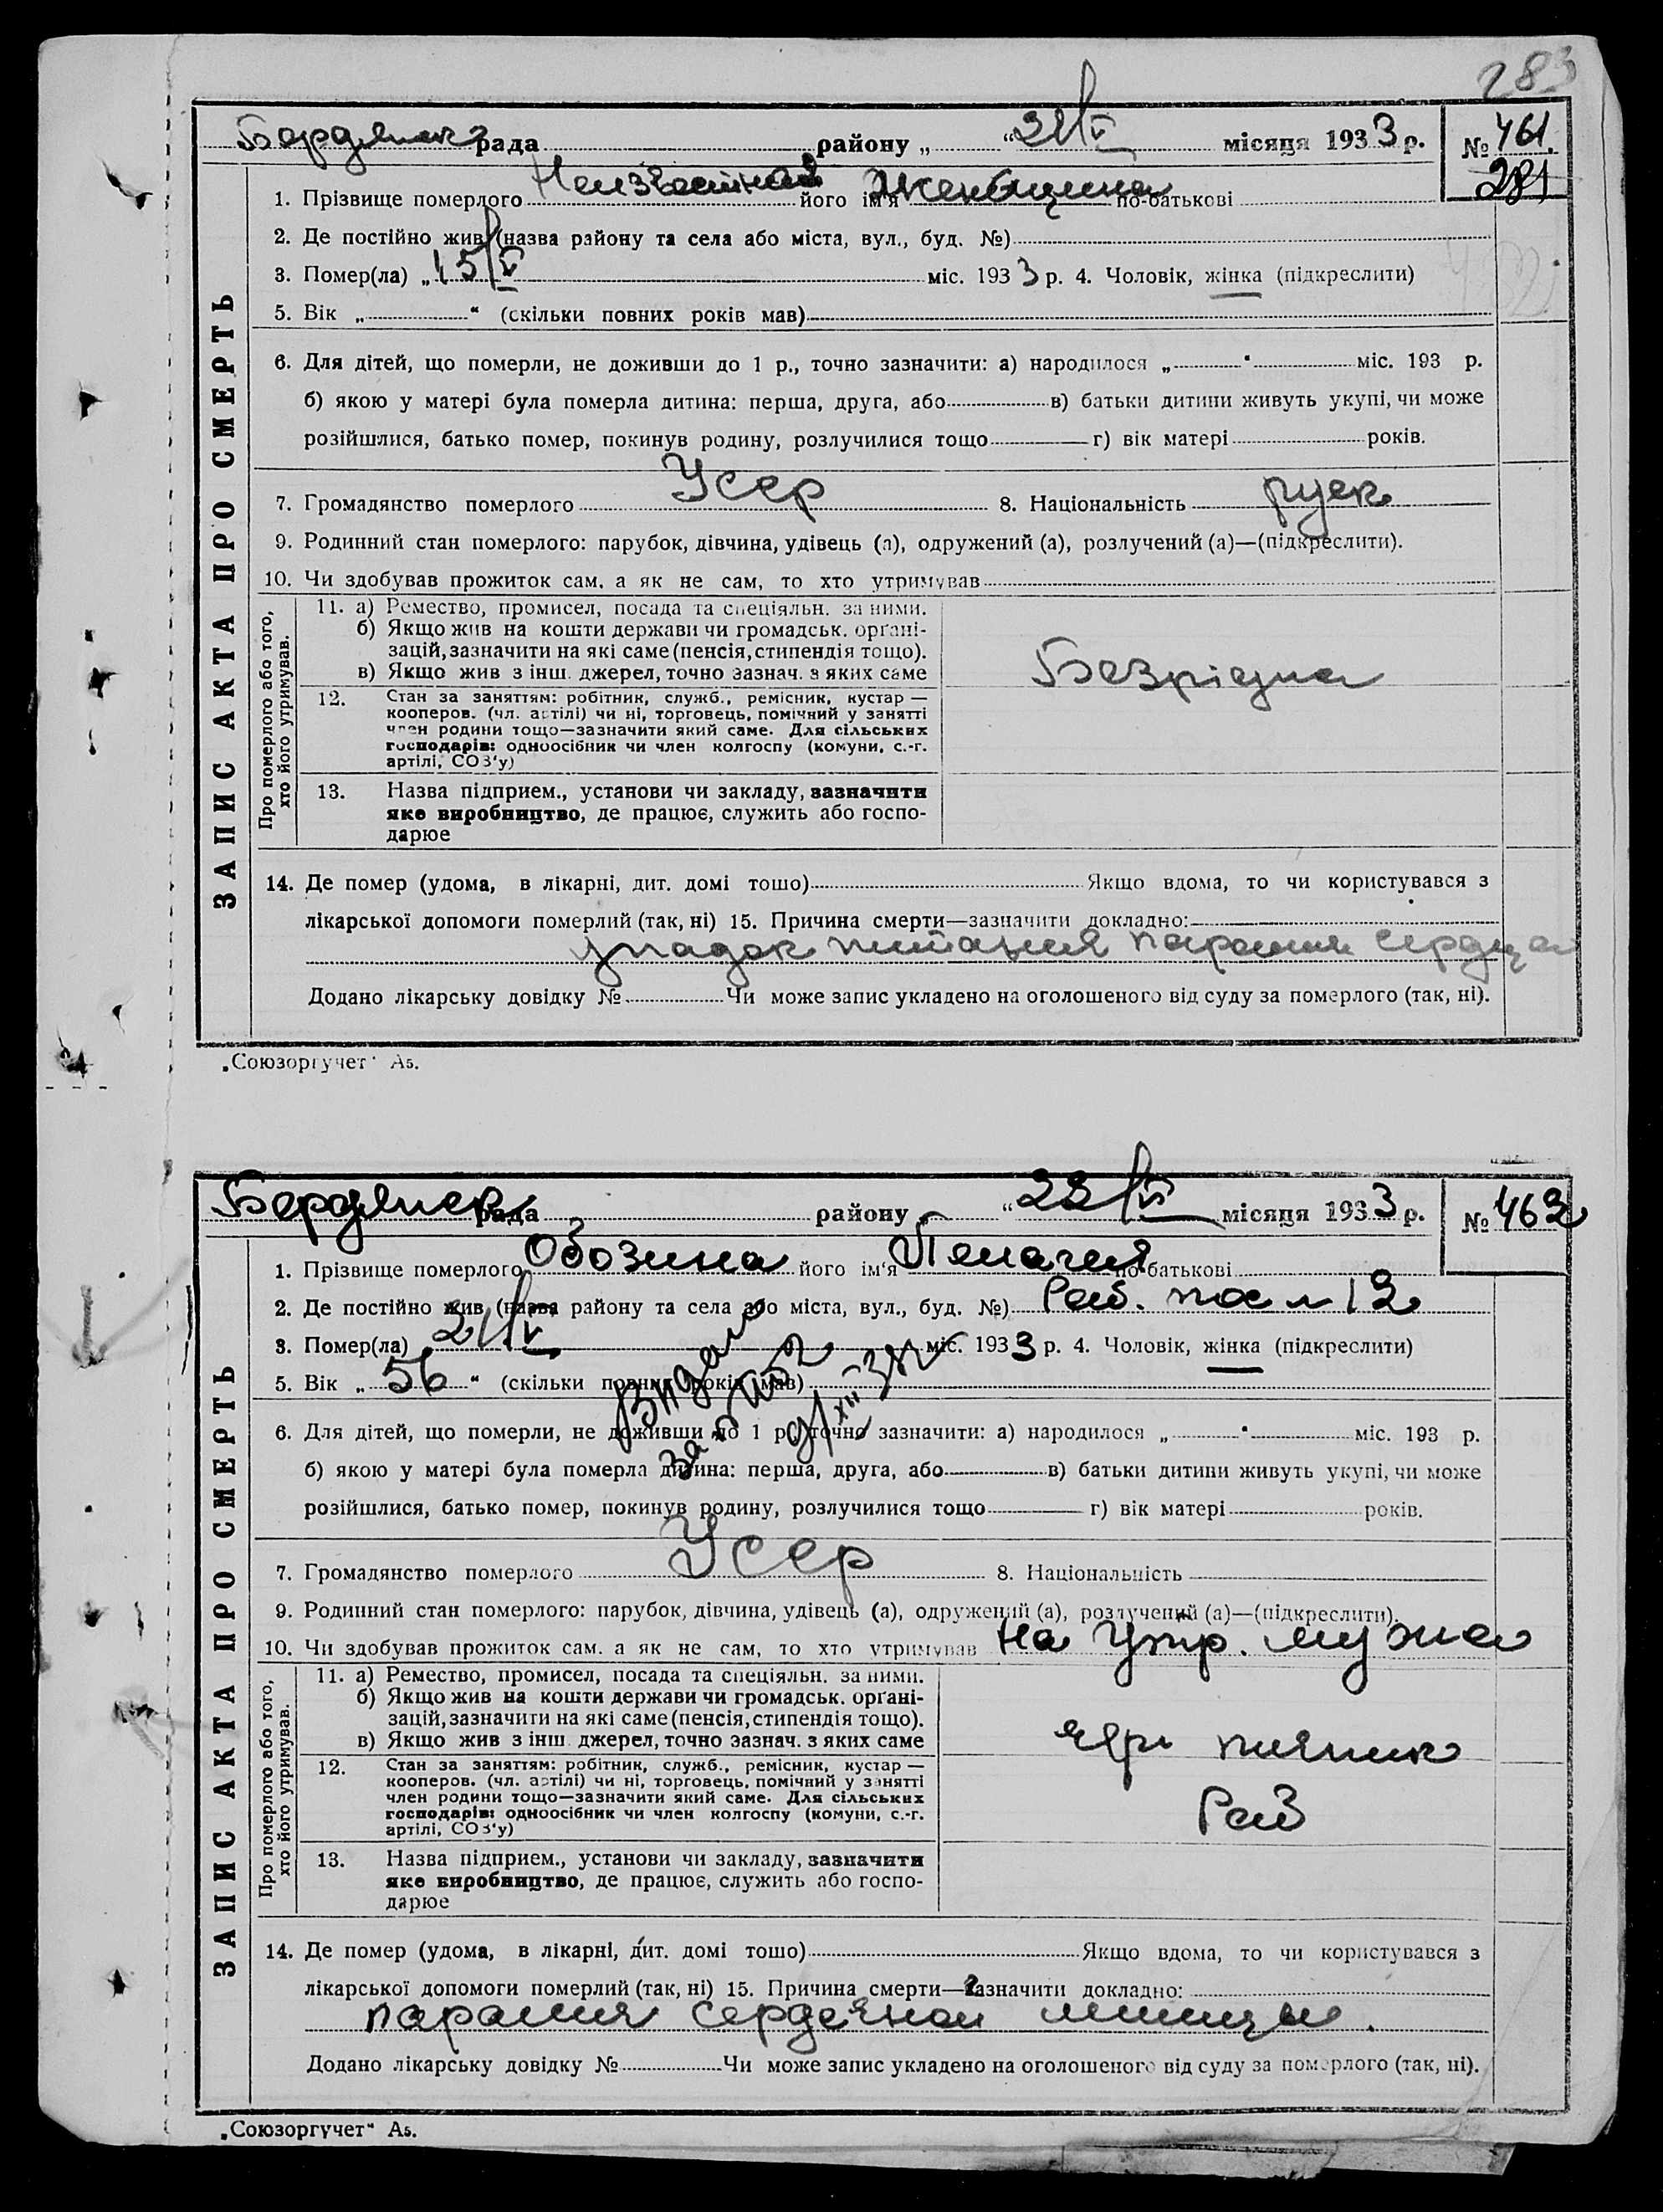 283
Бердянск рада района „ “ 22/V місяця 1933 р. № 461.
281
1. Прізвище померлого Неизвестная його ім'я Женщина по-батькові
2. Де постійно жив (назва району та села або міста, вул., буд. №)
3. Помер(ла) „15/V міс. 1933 р. 4. Чоловік, жінка (підкреслити)
5. Вік „ “ (скільки повних років мав)
6. Для дітей, що померли, не доживши до 1 р., точно зазначити: а) народилося „ “ міс. 193 р.
б) якою у матері була померла дитина: перша, друга, або в) батьки дитини живуть укупі, чи може
розійшлися, батько помер, покинув родину, розлучилися тощо г) вік матері років.
7. Громадянство померлого Усср 8. Національність руск
9. Родинний стан померлого: парубок, дівчина, удівець (а), одружений (а), розлучений (а)—(підкреслити).
10. Чи здобував прожиток сам, а як не сам, то хто утримував
ЗАПИС АКТА ПРО СМЕРТЬ
Про померлого або того,
хто його утримував.
11. а) Ремество, промисел, посада та спеціяльн. за ними.
б) Якщо жив на кошти держави чи громадськ. орґані-
зацій, зазначити на які саме (пенсія, стипендія тощо).
в) Якщо жив з інш. джерел, точно зазнач. з яких саме
Безрідна
12. Стан за заняттям: робітник, служб., ремісник, кустар —
кооперов. (чл. артілі) чи ні, торговець, помічний у занятті
член родини тощо—зазначити який саме. Для сільських
господарів: одноосібник чи член колгоспу (комуни, с.-г.
артілі, СОЗ'у)
13. Назва підприєм., установи чи закладу, зазначити
яке виробництво, де працює, служить або госпо-
дарює
14. Де помер (удома, в лікарні, дит. домі тошо) Якщо вдома, то чи користувався з
лікарської допомоги померлий (так, ні) 15. Причина смерти—зазначити докладно:
упадок питания паралич сердца
Додано лікарську довідку № Чи може запис укладено на оголошеного від суду за померлого (так, ні).
„Союзоргучет“ А5.
Бердянск рада району „ “ 22/V місяця 1933 р. № 462
1. Прізвище померлого Обозина його ім'я Пелагея по-батькові
2. Де постійно жив (назва району та села або міста, вул., буд. №) Раб. пос л 12
3. Помер(ла) „21/V міс. 1933 р. 4. Чоловік, жінка (підкреслити)
5. Вік „ 56 “ (скільки повних років мав)
Видано
за
9/XII 38
6. Для дітей, що померли, не доживши до 1 р., точно зазначити: а) народилося „ “ міс. 193 р.
б) якою у матері була померла дитина: перша, друга, або в) батьки дитини живуть укупі, чи може
розійшлися, батько помер, покинув родину, розлучилися тощо г) вік матері років.
7. Громадянство померлого Усср 8. Національність
9. Родинний стан померлого: парубок, дівчина, удівець (а), одружений (а), розлучений (а)—(підкреслити).
10. Чи здобував прожиток сам, а як не сам, то хто утримував на утр. мужа
ЗАПИС АКТА ПРО СМЕРТЬ
Про померлого або того,
хто його утримував.
11. а) Ремество, промисел, посада та спеціяльн. за ними.
б) Якщо жив на кошти держави чи громадськ. орґані-
зацій, зазначити на які саме (пенсія, стипендія тощо).
в) Якщо жив з інш. джерел, точно зазнач. з яких саме
12. Стан за заняттям: робітник, служб., ремісник, кустар —
кооперов. (чл. артілі) чи ні, торговець, помічний у занятті
член родини тощо—зазначити який саме. Для сільських
господарів: одноосібник чи член колгоспу (комуни, с.-г.
артілі, СОЗ'у)
Раб
13. Назва підприєм., установи чи закладу, зазначити
яке виробництво, де працює, служить або госпо-
дарює
14. Де помер (удома, в лікарні, дит. домі тошо) Якщо вдома, то чи користувався з
лікарської допомоги померлий (так, ні) 15. Причина смерти—зазначити докладно:
паралич сердечной мышцы.
Додано лікарську довідку № Чи може запис укладено на оголошеного від суду за померлого (так, ні).
„Союзоргучет“ А5.